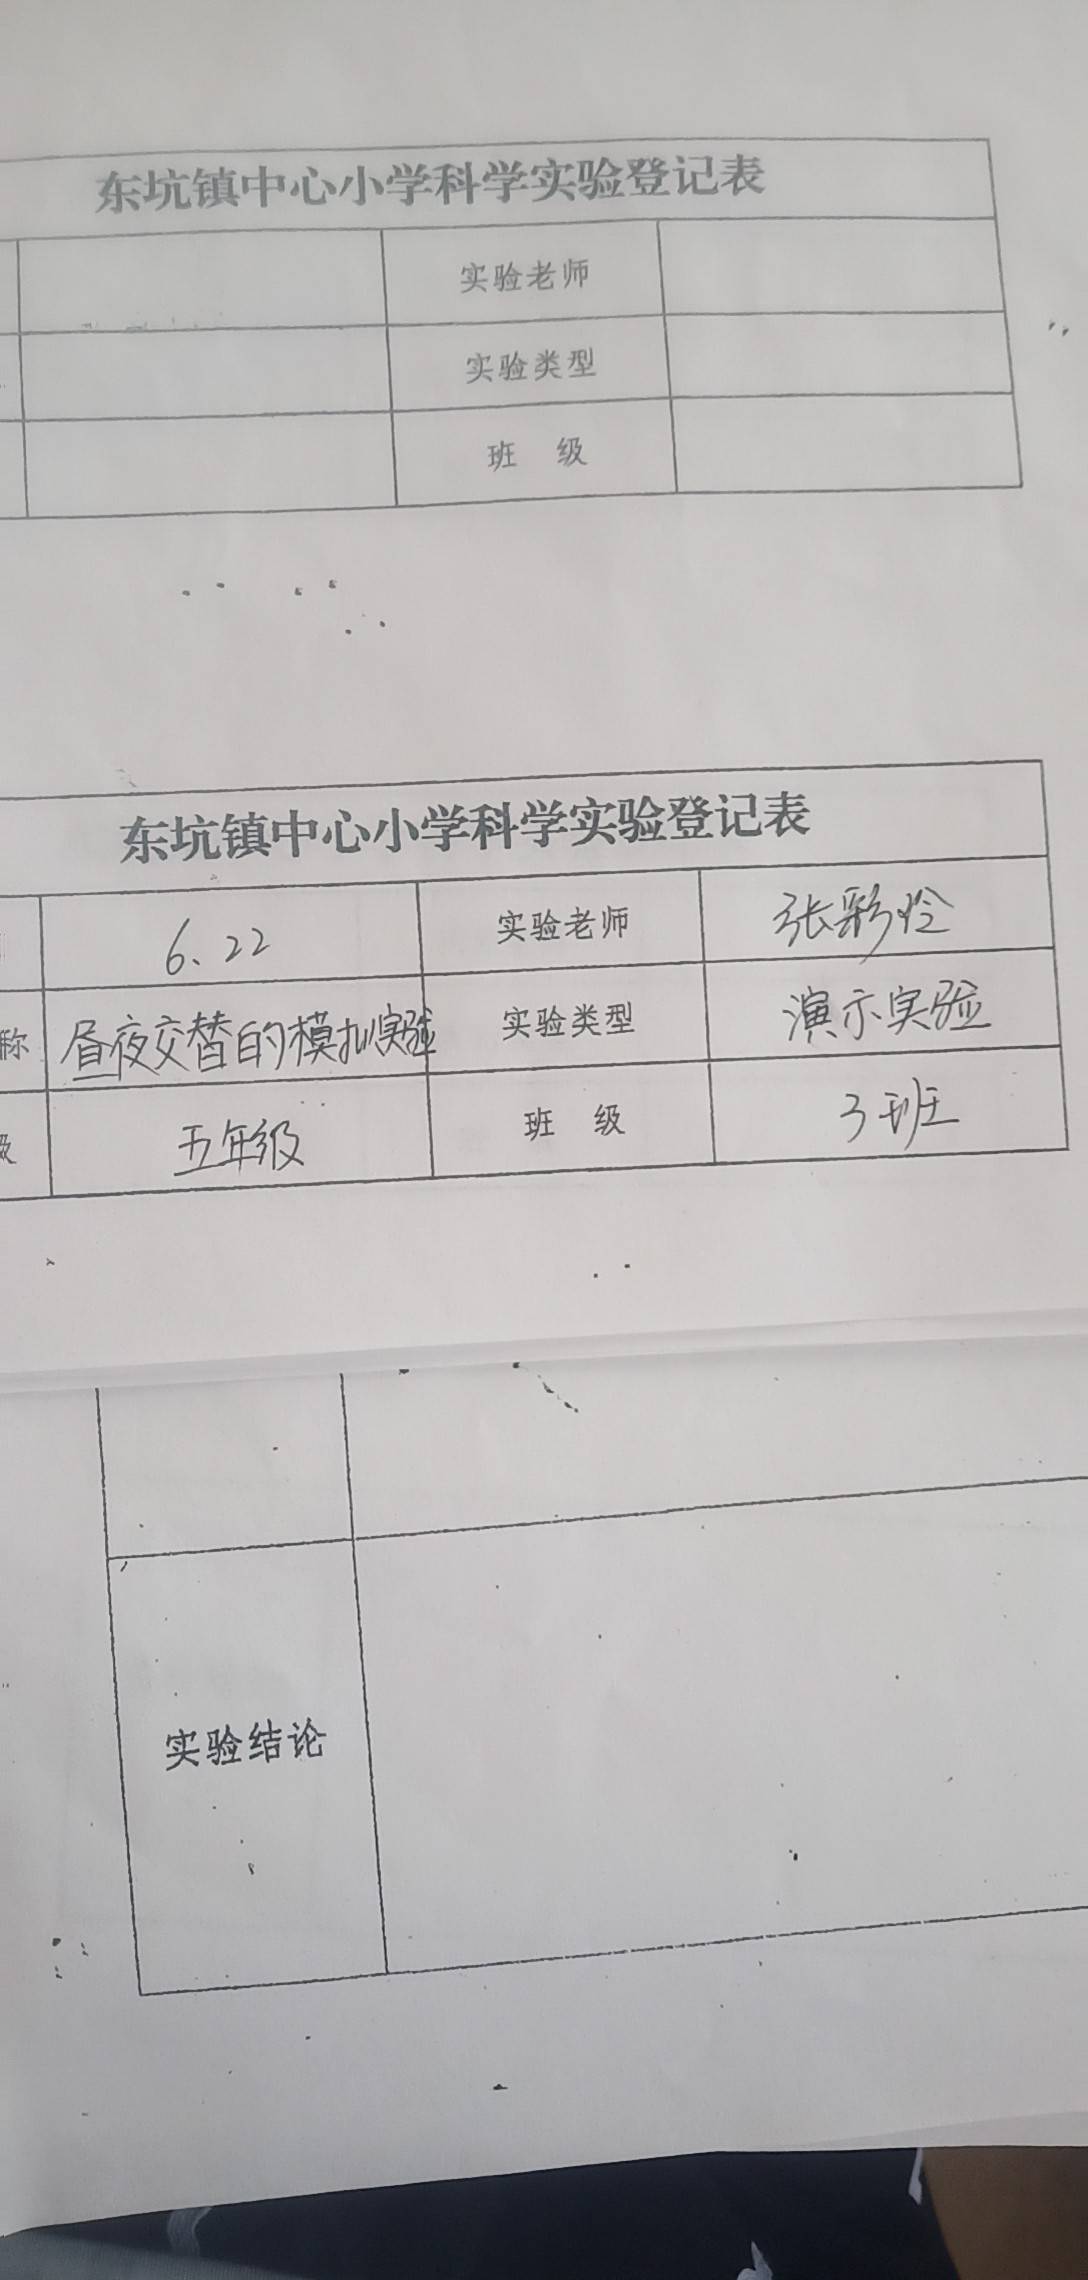 东坑镇中心小学科学实验登记表
实验老师
实验类型
班 级
东坑镇中心小学科学实验登记表
6.22 实验老师 张彩怜
称 昼夜交替的模拟实验 实验类型 演示实验
级 五年级 班 级 3班
实验结论